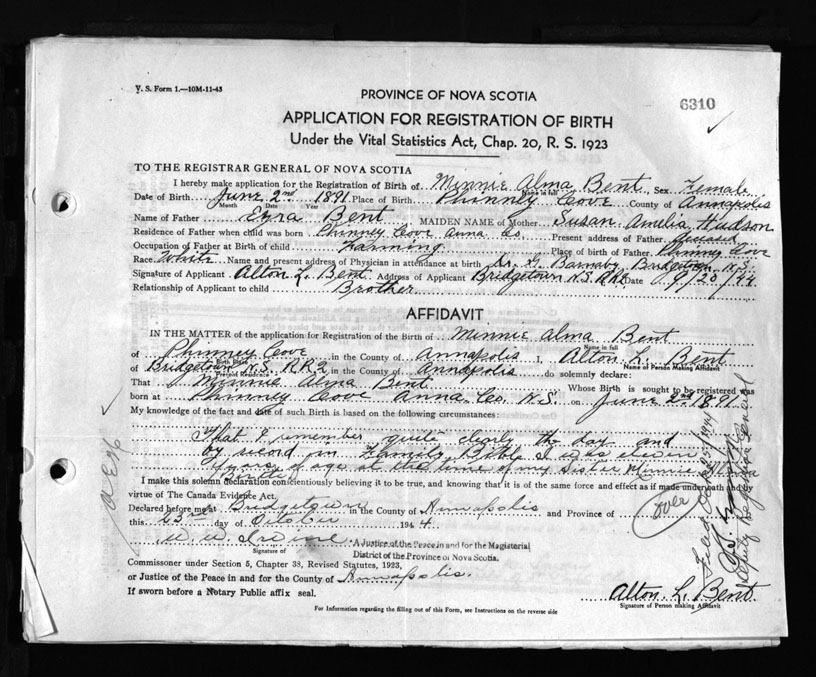 V. S. Form 1.—10M-11-43
PROVINCE OF NOVA SCOTIA
6310
APPLICATION FOR REGISTRATION OF BIRTH
Under the Vital Statistics Act, Chap. 20, R. S. 1923
TO THE REGISTRAR GENERAL OF NOVA SCOTIA
I hereby make application for the Registration of Birth of Minnie Alma Bent, Sex Female
Name in full
Date of Birth June 2nd 1891 Place of Birth Phinney Cove County of Annapolis
Month Date Year
Name of Father Ezra Bent MAIDEN NAME of Mother Susan Amelia Hudson
Residence of Father when child was born Phinney Cove Anna. Co. Present address of Father Deceased
Occupation of Father at Birth of child Farming Place of birth of Father Phinney Cove
Race White Name and present address of Physician in attendance at birth Dr. Barnaby Bridgetown N.S.
Signature of Applicant Alton L. Bent Address of Applicant Bridgetown N.S. RR2 Date 23/44
Relationship of Applicant to child Brother
AFFIDAVIT
IN THE MATTER of the application for Registration of the Birth of Minnie Alma Bent
Name in full
of Phinney Cove in the County of Annapolis I, Alton L. Bent
Birth Place
Name of Person Making Affidavit
of Bridgetown N.S. RR2 in the County of Annapolis do solemnly declare:
Present Residence
That Minnie Alma Bent Whose Birth is sought to be registered was
born at Phinney Cove Anna. Co. N.S. on June 2nd 1891
My knowledge of the fact and date of such Birth is based on the following circumstances:
That I remember quite clearly the day and
by record in Family Bible I was eleven
years of age at the time of my Sister Minnie Alma
I make this solemn declaration conscientiously believing it to be true, and knowing that it is of the same force and effect as if made under oath and by
virtue of The Canada Evidence Act.
Declared before me at Bridgetown in the County of Annapolis and Province of
this 23rd day of October 1944
Over
Signature of
A Justice of the Peace in and for the Magisterial
District of the Province of Nova Scotia.
Commissioner under Section 5, Chapter 38, Revised Statutes, 1923,
or Justice of the Peace in and for the County of Annapolis.
If sworn before a Notary Public affix seal.
Alton L. Bent.
Signature of Person making Affidavit
For Information regarding the filling out of this Form, see Instructions on the reverse side
Filed Oct 25 1944
Deputy Registrar General